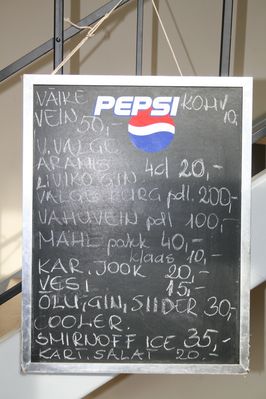 VÄIKE PEPSI KOHV
VEIN 50,- 10,-
V. VALGE
ARARAT 4cl 20,-
LIVIKO GIN
VALGE KURG pdl. 200,-
VAHUVEIN pdl 100,-
MAHL pakk 40,-
klaas 10,-
KAR. JOOK 20,-
VESI 15,-
ÕLU, GIN, SIIDER 30,-
COOLER.
SMIRNOFF ICE 35,-
KART. SALAT 20.-